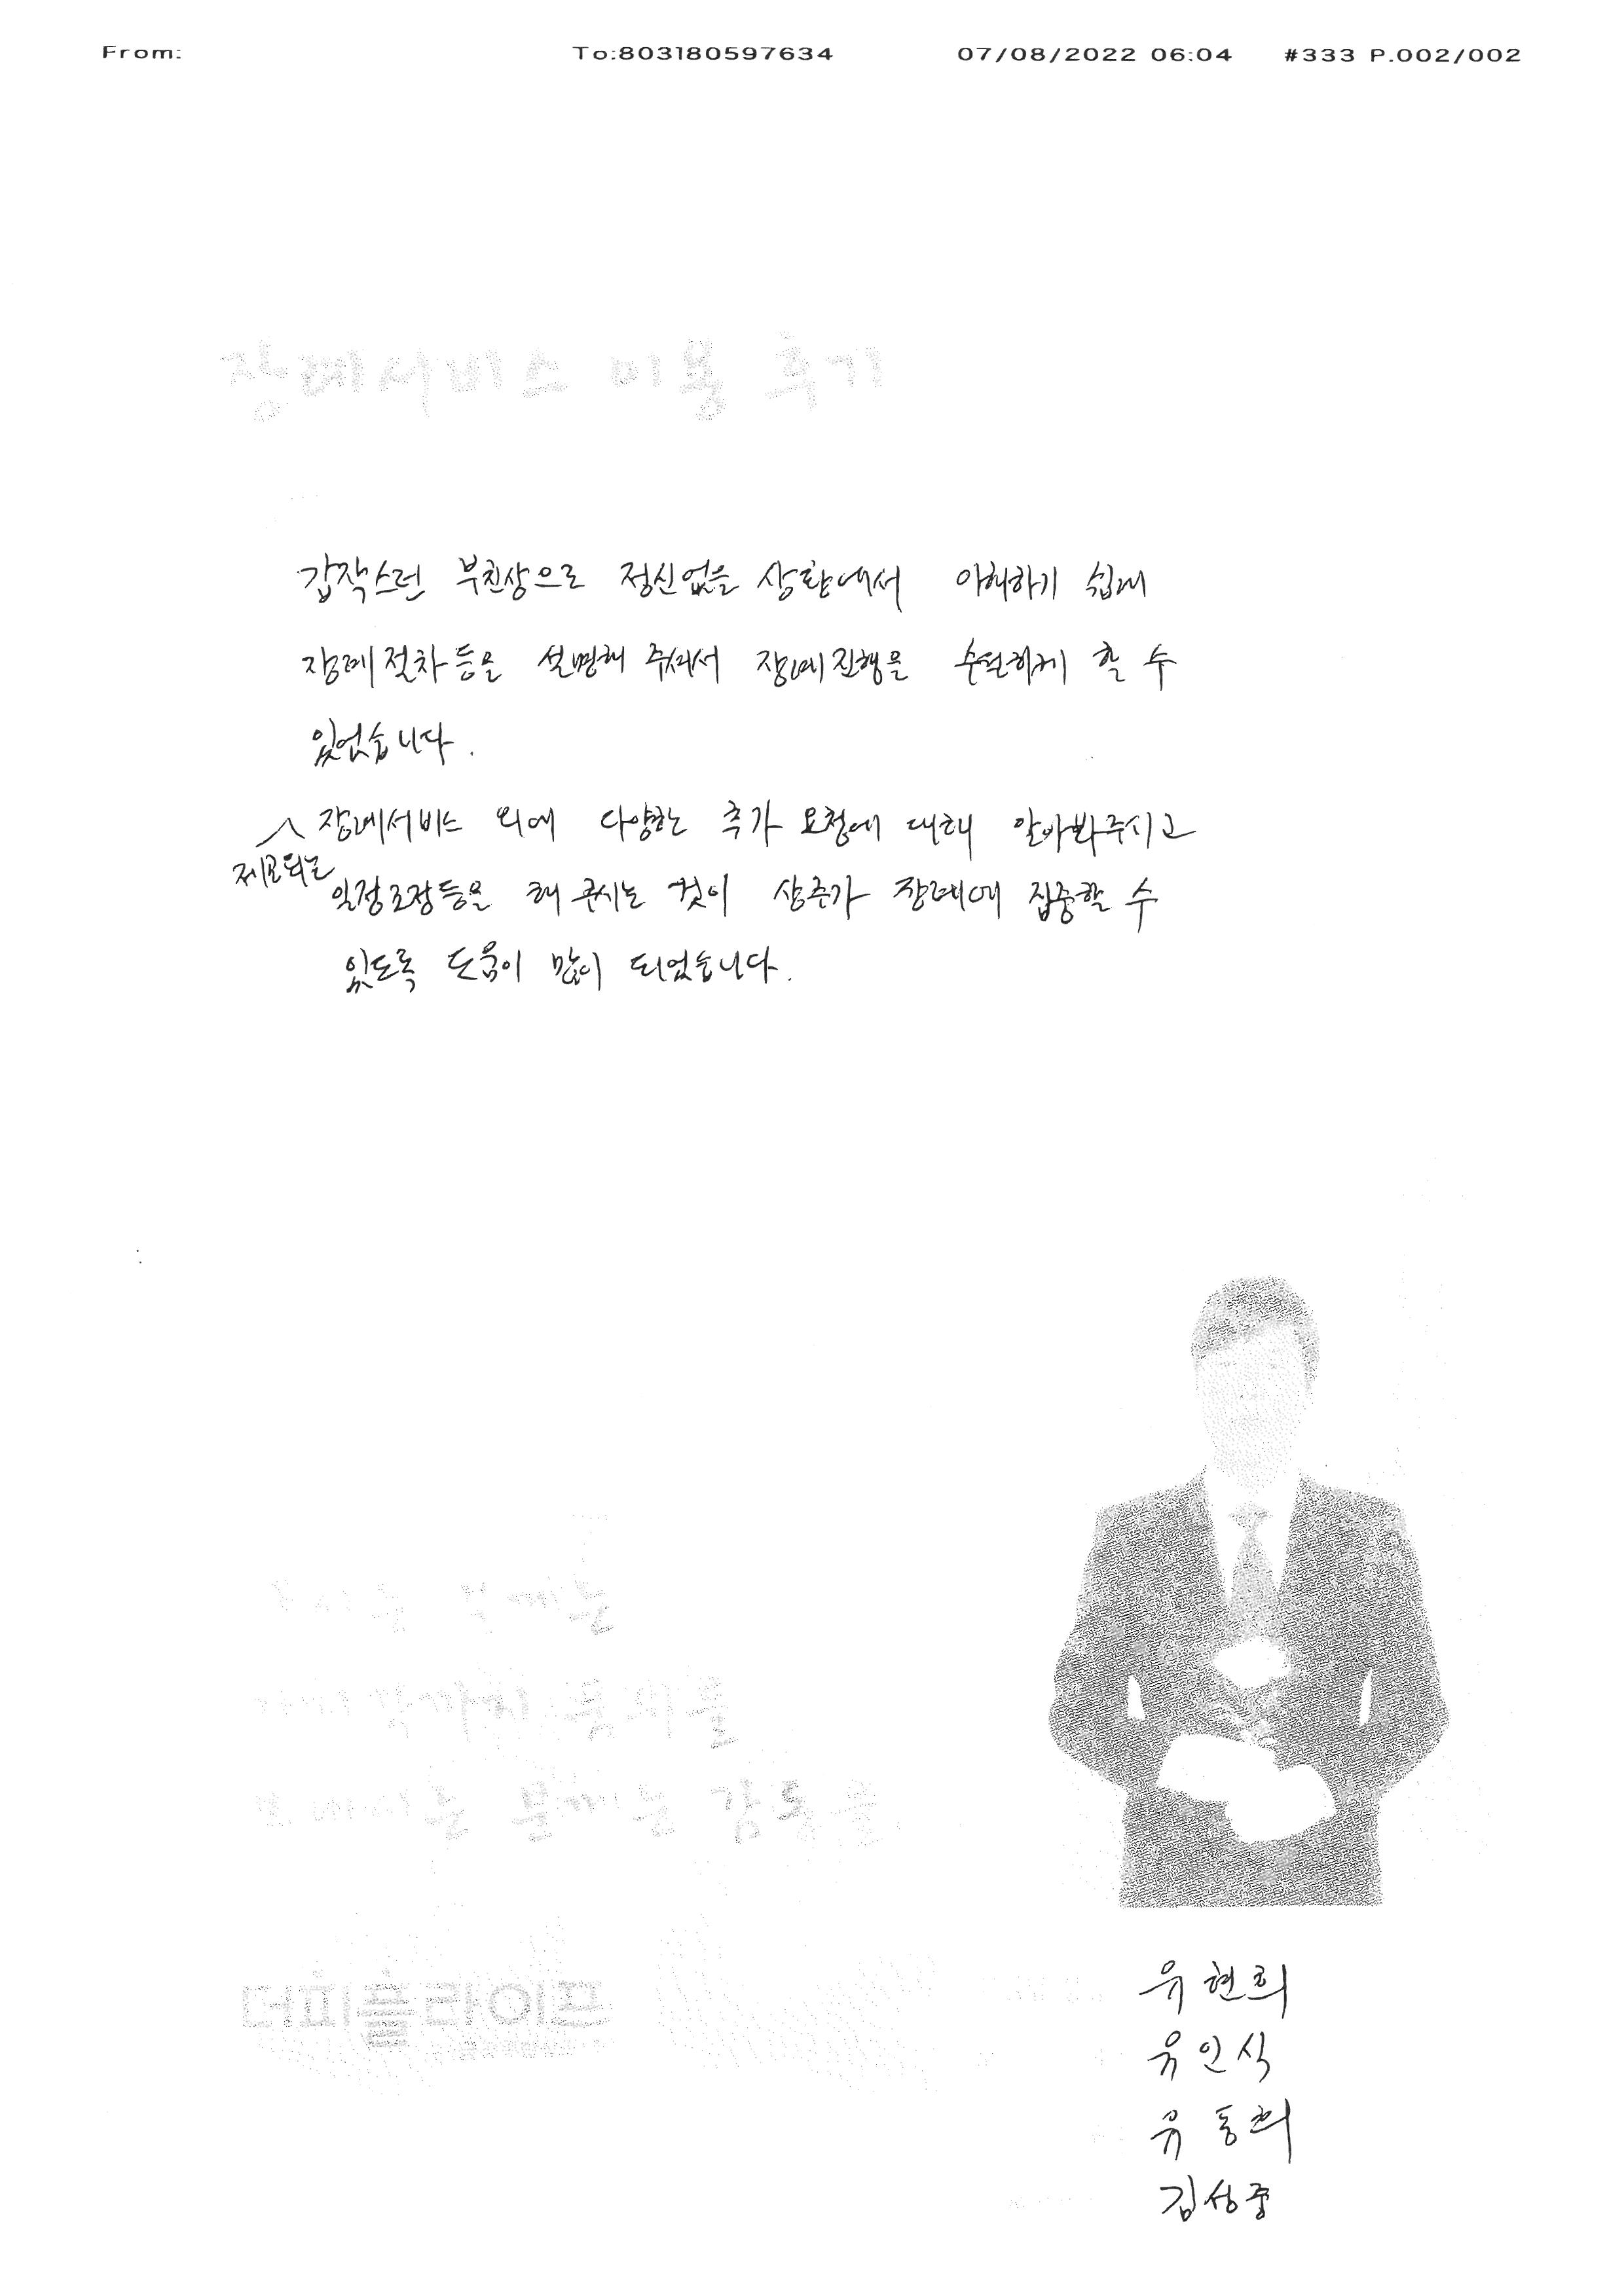 From: To:803180597634 07/08/2022 06:04 #333 P.002/002
장례서비스 이용 후기
갑작스런 부친상으로 정신없을 상황에서 이해하기 쉽게
장례절차등을 설명해 주셔서 장례진행을 수월하게 할 수
있었습니다.
제공되는 장례서비스 외에 다양한 추가 요청에 대해 알아봐주시고
일정조정등을 해 주시는 것이 상주가 장례에 집중할 수
있도록 도움이 많이 되었습니다.
가시는
마지막까지 품위를
보내시는 분께는 감동을
더피플라이프
유현희
유인식
유동희
김상중